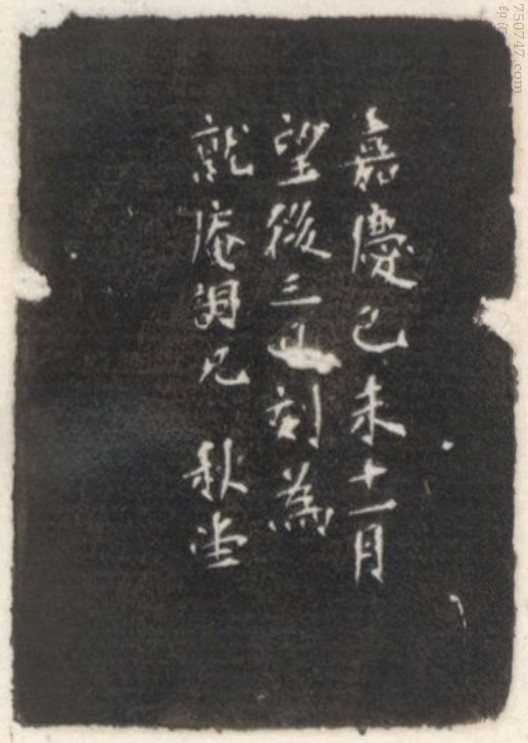 嘉慶己未十一月
望後三日刻為
就庵詞兄　秋堂
750747.com